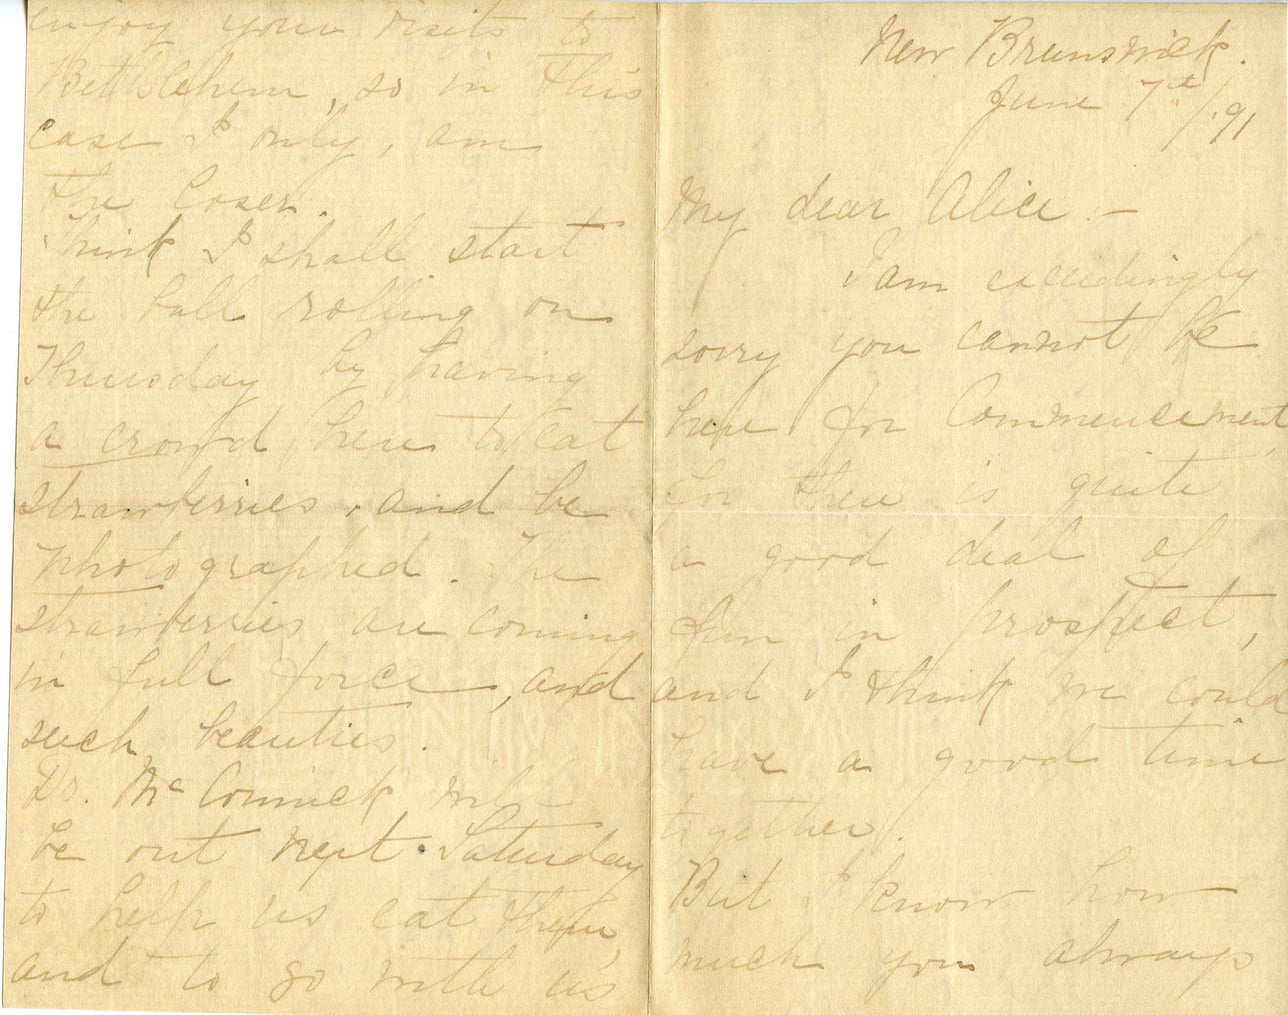 New Brunswick.
June 7th/'91
My dear Alice. —
I am exceedingly
sorry you cannot be
here for Commencement,
for there is quite
a good deal of
fun in prospect,
and I think we could
have a good time
together.
But I know how
much you always
enjoy your visits to
Bethlehem, so in this
case I only, am
the loser.
Think I shall start
the ball rolling on
Thursday by having
a crowd here to eat
strawberries and be
photographed. The
strawberries are coming
in full force, and
such beauties.
Dr. McCormick will
be out next Saturday
to help us eat them,
and to go with us